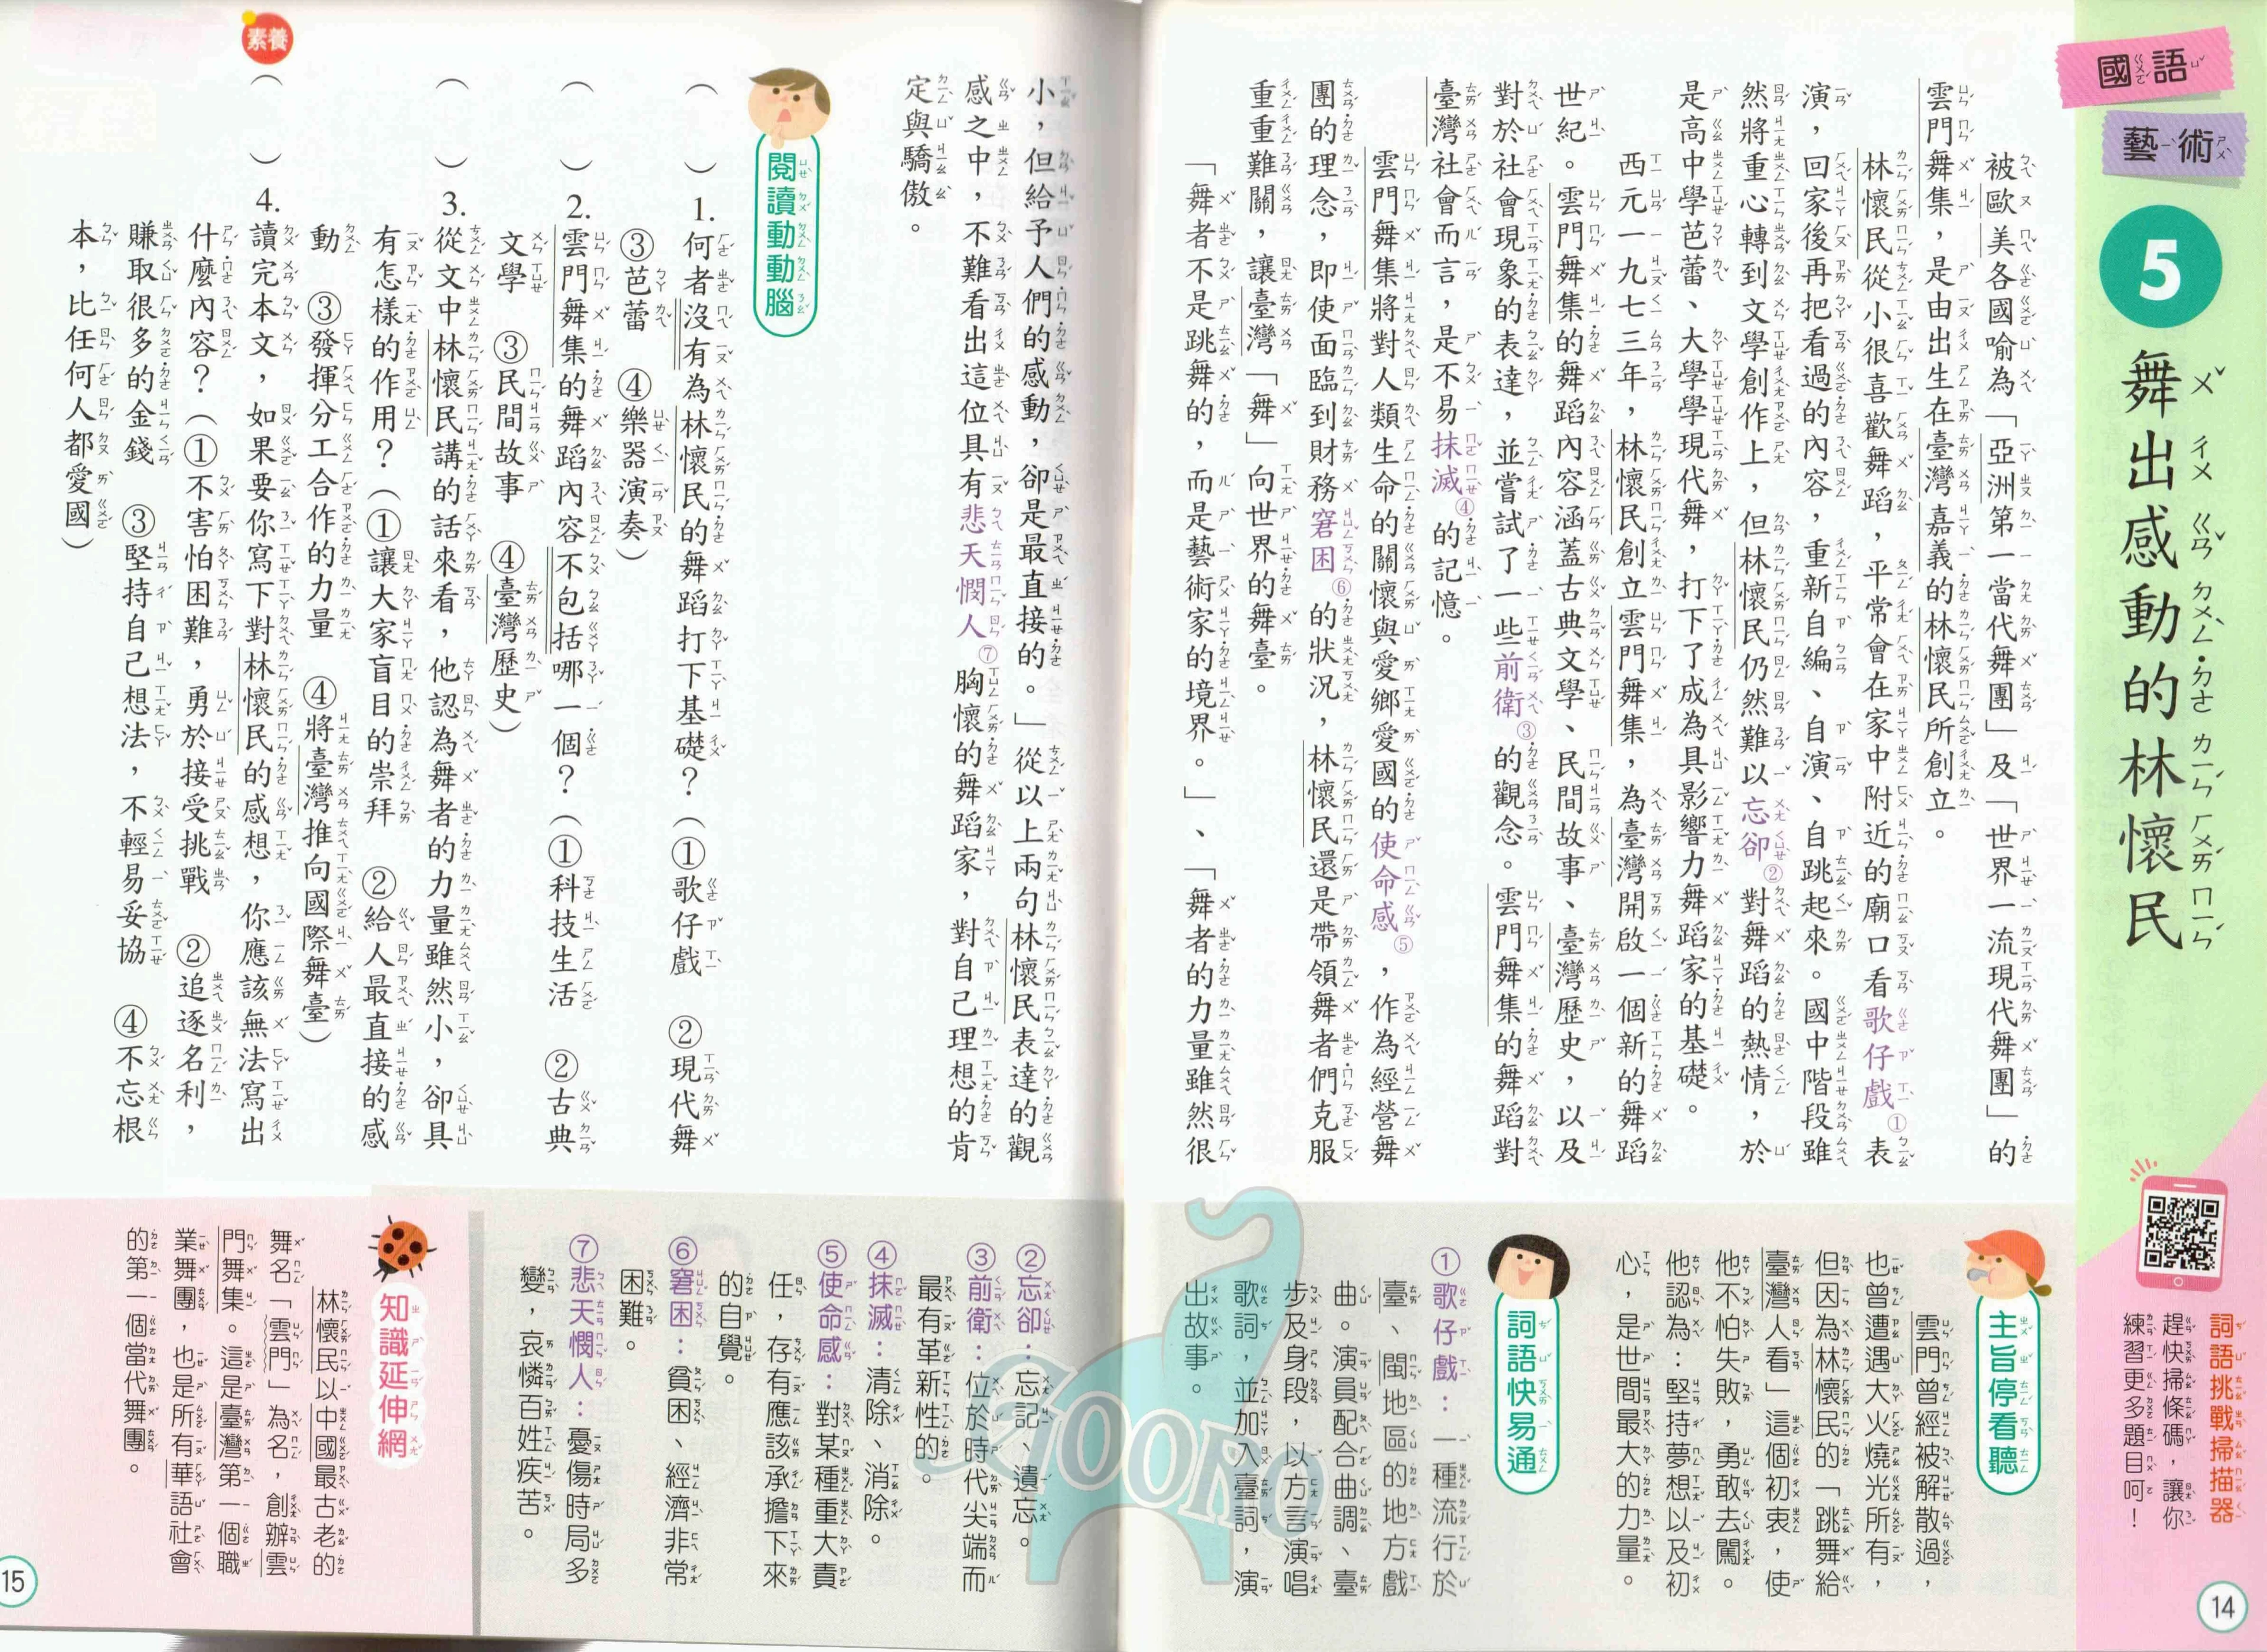 國語
藝術
5 舞出感動的林懷民
被歐美各國喻為「亞洲第一當代舞團」及「世界一流現代舞團」的
雲門舞集，是由出生在臺灣嘉義的林懷民所創立。
林懷民從小很喜歡舞蹈，平常會在家中附近的廟口看歌仔戲①表
演，回家後再把看過的內容，重新自編、自演、自跳起來。國中階段雖
然將重心轉到文學創作上，但林懷民仍然難以忘卻②對舞蹈的熱情，於
是高中學芭蕾、大學學現代舞，打下了成為具影響力舞蹈家的基礎。
西元一九七三年，林懷民創立雲門舞集，為臺灣開啟一個新的舞蹈
世紀。雲門舞集的舞蹈內容涵蓋古典文學、民間故事、臺灣歷史，以及
對於社會現象的表達，並嘗試了一些前衛③的觀念。雲門舞集的舞蹈對
臺灣社會而言，是不易抹滅④的記憶。
雲門舞集將對人類生命的關懷與愛鄉愛國的使命感⑤，作為經營舞
團的理念，即使面臨到財務窘困⑥的狀況，林懷民還是帶領舞者們克服
重重難關，讓臺灣「舞」向世界的舞臺。
「舞者不是跳舞的，而是藝術家的境界。」、「舞者的力量雖然很
小，但給予人們的感動，卻是最直接的。」從以上兩句林懷民表達的觀
感之中，不難看出這位具有悲天憫人⑦胸懷的舞蹈家，對自己理想的肯
定與驕傲。
閱讀動動腦
（　）1. 何者沒有為林懷民的舞蹈打下基礎？（①歌仔戲　②現代舞
③芭蕾　④樂器演奏）
（　）2. 雲門舞集的舞蹈內容不包括哪一個？（①科技生活　②古典
文學　③民間故事　④臺灣歷史）
（　）3. 從文中林懷民講的話來看，他認為舞者的力量雖然小，卻具
有怎樣的作用？（①讓大家盲目的崇拜　②給人最直接的感
動　③發揮分工合作的力量　④將臺灣推向國際舞臺）
素養
（　）4. 讀完本文，如果要你寫下對林懷民的感想，你應該無法寫出
什麼內容？（①不害怕困難，勇於接受挑戰　②追逐名利，
賺取很多的金錢　③堅持自己想法，不輕易妥協　④不忘根
本，比任何人都愛國）
詞語挑戰掃描器
趕快掃條碼，讓你
練習更多題目呵！
主旨停看聽
雲門曾經被解散過，
也曾遭遇大火燒光所有，
但因為林懷民的「跳舞給
臺灣人看」這個初衷，使
他不怕失敗，勇敢去闖。
他認為：堅持夢想以及初
心，是世間最大的力量。
詞語快易通
①歌仔戲：一種流行於
臺、閩地區的地方戲
曲。演員配合曲調、臺
步及身段，以方言演唱
歌詞，並加入臺詞，演
出故事。
②忘卻：忘記、遺忘。
③前衛：位於時代尖端而
最有革新性的。
④抹滅：清除、消除。
⑤使命感：對某種重大責
任，存有應該承擔下來
的自覺。
⑥窘困：貧困、經濟非常
困難。
⑦悲天憫人：憂傷時局多
變，哀憐百姓疾苦。
知識延伸網
林懷民以中國最古老的
舞名「雲門」為名，創辦雲
門舞集。這是臺灣第一個職
業舞團，也是所有華語社會
的第一個當代舞團。
ZOORO
14
15